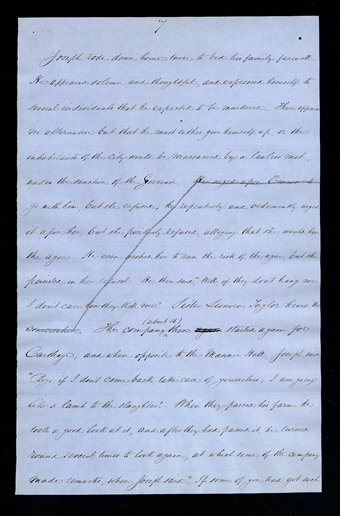 7
Joseph rode down home twice to bid his family farewell.
He appeared solemn and thoughtful, and expressed himself to
several individuals that he expected to be murdered. There appear
no alternative but that he must either give himself up, or the
inhabitants of the city would be massacred by a lawless mob,
under the sanction of the Governor. He urged upon Emma to
go with him, but she refused, he repeatedly and vehemently urged
it upon her, but she positively refused, alleging that she would have
the ague. He even wished her to run the risk of the ague, but she
persisted in her refusal. He then said "Well, if they don't hang me
I don't care how they kill me." Sister Leonora Taylor heard the
conversation. The company (about 15) then started again for
Carthage, and when opposite to the Masonic Hall, Joseph said
"Boys if I don't come back take care of yourselves; I am going
like a lamb to the slaughter." When they passed his farm he
took a good look at it, and after they had passed it, he turned
round several times to look again, at which some of the company
made remarks, when Joseph said: "If some of you had got such